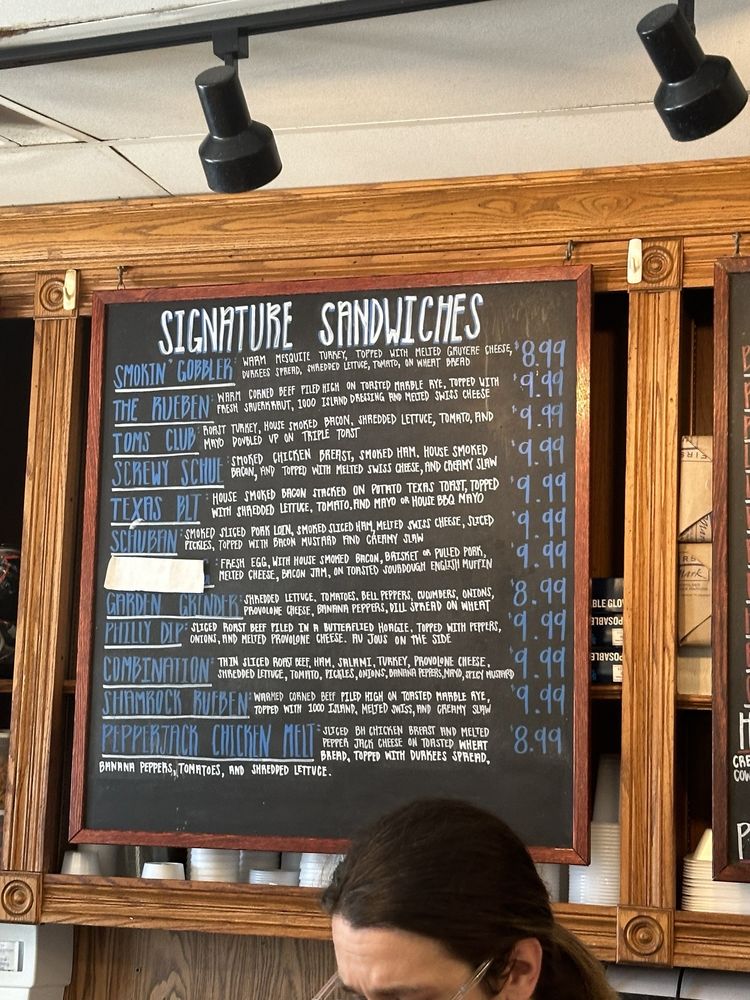 SIGNATURE SANDWICHES
SMOKIN' GOBBLER: WARM MESQUITE TURKEY, TOPPED WITH MELTED GRUYERE CHEESE, $8.99
DURKEES SPREAD, SHREDDED LETTUCE, TOMATO, ON WHEAT BREAD
THE RUEBEN: WARM CORNED BEEF PILED HIGH ON TOASTED MARBLE RYE, TOPPED WITH $9.99
FRESH SAUERKRAUT, 1000 ISLAND DRESSING AND MELTED SWISS CHEESE
TOMS CLUB: ROAST TURKEY, HOUSE SMOKED BACON, SHREDDED LETTUCE, TOMATO, AND $9.99
MAYO DOUBLED UP ON TRIPLE TOAST
SCREWY SCHUE: SMOKED CHICKEN BREAST, SMOKED HAM, HOUSE SMOKED $9.99
BACON, AND TOPPED WITH MELTED SWISS CHEESE, AND CREAMY SLAW
TEXAS BLT: HOUSE SMOKED BACON STACKED ON POTATO TEXAS TOAST, TOPPED $9.99
WITH SHREDDED LETTUCE, TOMATO, AND MAYO OR HOUSE BBQ MAYO
SCHUBAN: SMOKED SLICED PORK LOIN, SMOKED SLICED HAM, MELTED SWISS CHEESE, SLICED $9.99
PICKLES, TOPPED WITH BACON MUSTARD AND CREAMY SLAW
: FRESH EGG, WITH HOUSE SMOKED BACON, BRISKET OR PULLED PORK, $9.99
MELTED CHEESE, BACON JAM, ON TOASTED SOURDOUGH ENGLISH MUFFIN
GARDEN GRINDER: SHREDDED LETTUCE, TOMATOES, BELL PEPPERS, CUCUMBERS, ONIONS, $8.99
PROVOLONE CHEESE, BANANA PEPPERS, DILL SPREAD ON WHEAT
PHILLY DIP: SLICED ROAST BEEF PILED IN A BUTTERFLIED HOAGIE, TOPPED WITH PEPPERS, $9.99
ONIONS, AND MELTED PROVOLONE CHEESE. AU JOUS ON THE SIDE
COMBINATION: THIN SLICED ROAST BEEF, HAM, SALAMI, TURKEY, PROVOLONE CHEESE, $9.99
SHREDDED LETTUCE, TOMATO, PICKLES, ONIONS, BANANA PEPPERS, MAYO, SPICY MUSTARD
SHAMROCK RUEBEN: WARMED CORNED BEEF PILED HIGH ON TOASTED MARBLE RYE, $9.99
TOPPED WITH 1000 ISLAND, MELTED SWISS, AND CREAMY SLAW
PEPPERJACK CHICKEN MELT: SLICED BH CHICKEN BREAST AND MELTED $8.99
PEPPER JACK CHEESE ON TOASTED WHEAT
BREAD, TOPPED WITH DURKEES SPREAD,
BANANA PEPPERS, TOMATOES, AND SHREDDED LETTUCE.